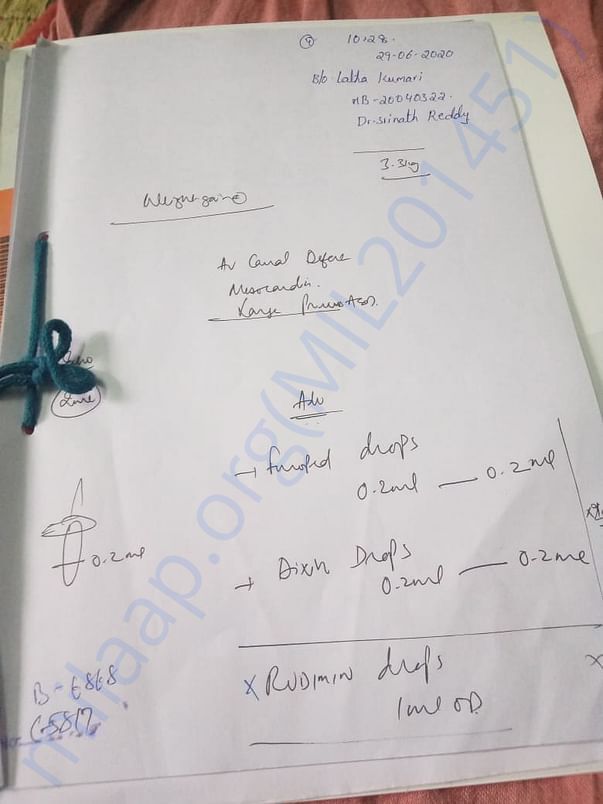 ④ 10:28.
29-06-2020
B/o Latha Kumari
MB-20040322.
Dr. Srinath Reddy
3.3kg
Weight gain
AV Canal Defect
Mesocardia.
Large Primum ASD.
Adv
→ Furoped drops
0.2ml — 0.2ml
0.2ml
→ Dixin Drops
0.2ml — 0.2ml
x RUDIMIN drops x
1ml OD
B-6868
C-5817
milaap.org(MIL201451)